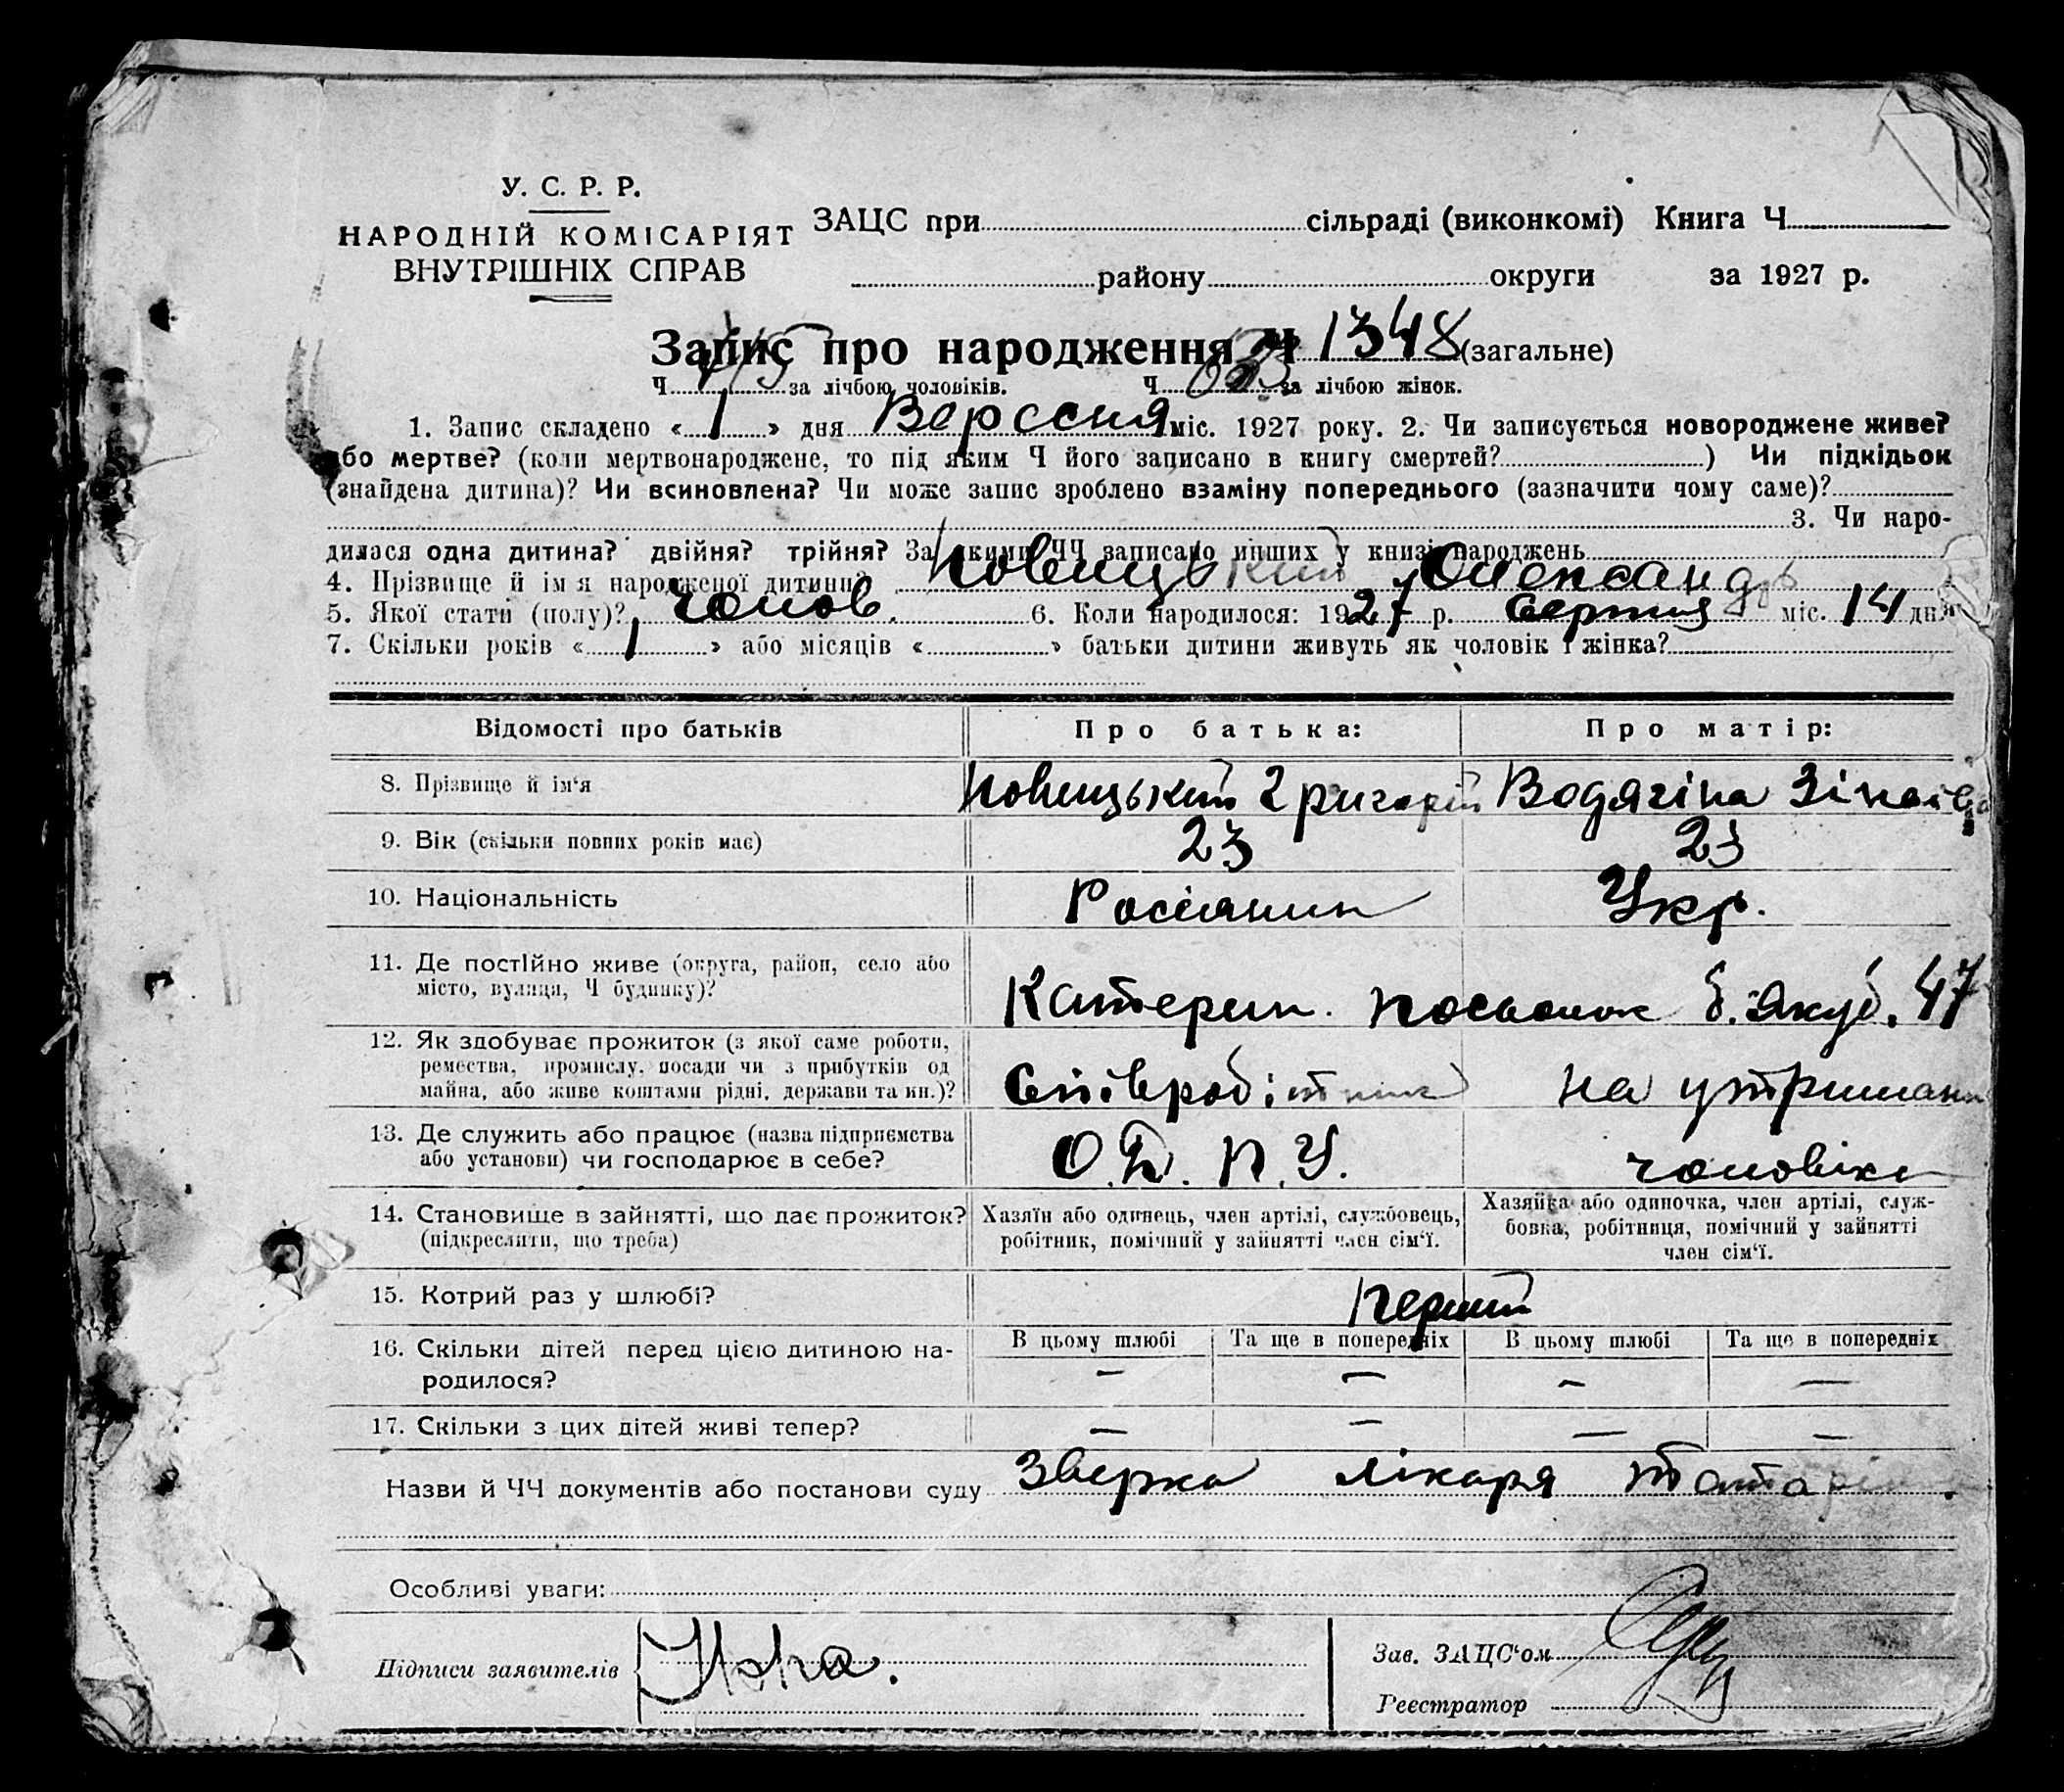 У. С. Р. Р.
НАРОДНІЙ КОМІСАРІЯТ
ВНУТРІШНІХ СПРАВ
ЗАЦС при сільраді (виконкомі) Книга Ч
району округи за 1927 р.
Запис про народження Ч 1348 (загальне)
Ч 715 за лічбою чоловіків. Ч за лічбою жінок.
1. Запис складено « 1 » дня Вересня міс. 1927 року. 2. Чи записується новороджене живе?
або мертве? (коли мертвонароджене, то під яким Ч його записано в книгу смертей? ) Чи підкідьок
(знайдена дитина)? Чи всиновлена? Чи може запис зроблено взаміну попереднього (зазначити чому саме)?
3. Чи наро-
дилася одна дитина? двійня? трійня? За якими ЧЧ записано инших у книзі народжень
4. Прізвище й ім'я народженої дитини? Новицький Олександр
5. Якої стати (полу)? чолов. 6. Коли народилося: 1927 р. Серпня міс. 14 дня
7. Скільки років « 1 » або місяців « » батьки дитини живуть як чоловік і жінка?
Відомості про батьків Про батька: Про матір:
8. Прізвище й ім'я Новицький Григорій Водягіна Зінаїда
9. Вік (скільки повних років має) 23 23
10. Національність Росіянин Укр.
11. Де постійно живе (округа, район, село або
місто, вулиця, Ч будинку)? Катерин. посьолок б. Якуб. 47
12. Як здобуває прожиток (з якої саме роботи,
ремества, промислу, посади чи з прибутків од
майна, або живе коштами рідні, держави та ин.)? Співробітник на утриманн
13. Де служить або працює (назва підприємства
або установи) чи господарює в себе? О. Д. П. У. чоловіка
14. Становище в зайнятті, що дає прожиток?
(підкреслити, що треба)
Хазяїн або одинець, член артілі, службовець,
робітник, помічний у зайнятті член сім'ї.
Хазяйка або одиночка, член артілі, служ-
бовка, робітниця, помічний у зайнятті
член сім'ї.
15. Котрий раз у шлюбі? Перший
В цьому шлюбі Та ще в попередніх В цьому шлюбі Та ще в попередніх
16. Скільки дітей перед цією дитиною на-
родилося? — — — —
17. Скільки з цих дітей живі тепер? — — — —
Назви й ЧЧ документів або постанови суду лікаря
Особливі уваги:
Підписи заявителів
Зав. ЗАЦС'ом
Реєстратор